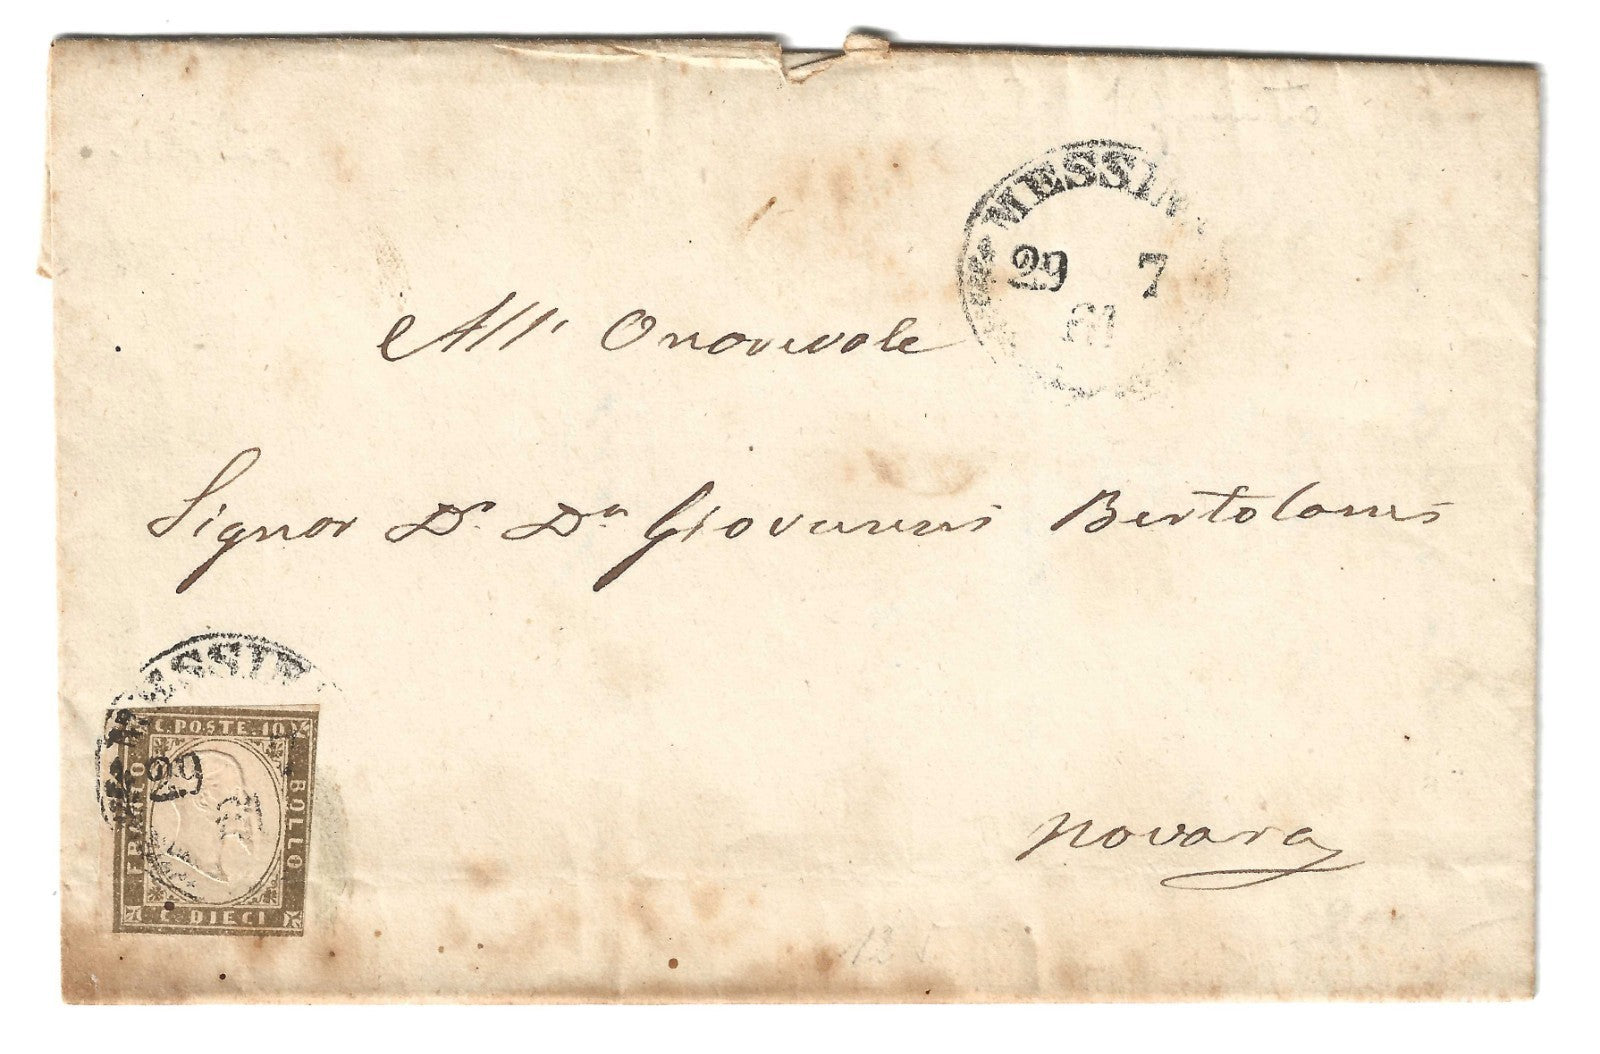 MESSINA
29 7
61
All' Onorevole
Signor Dr. Dn Giovanni Bertolami
Novara
MESSINA
29
C. POSTE 10
FRANCO
BOLLO
C. DIECI
12 5